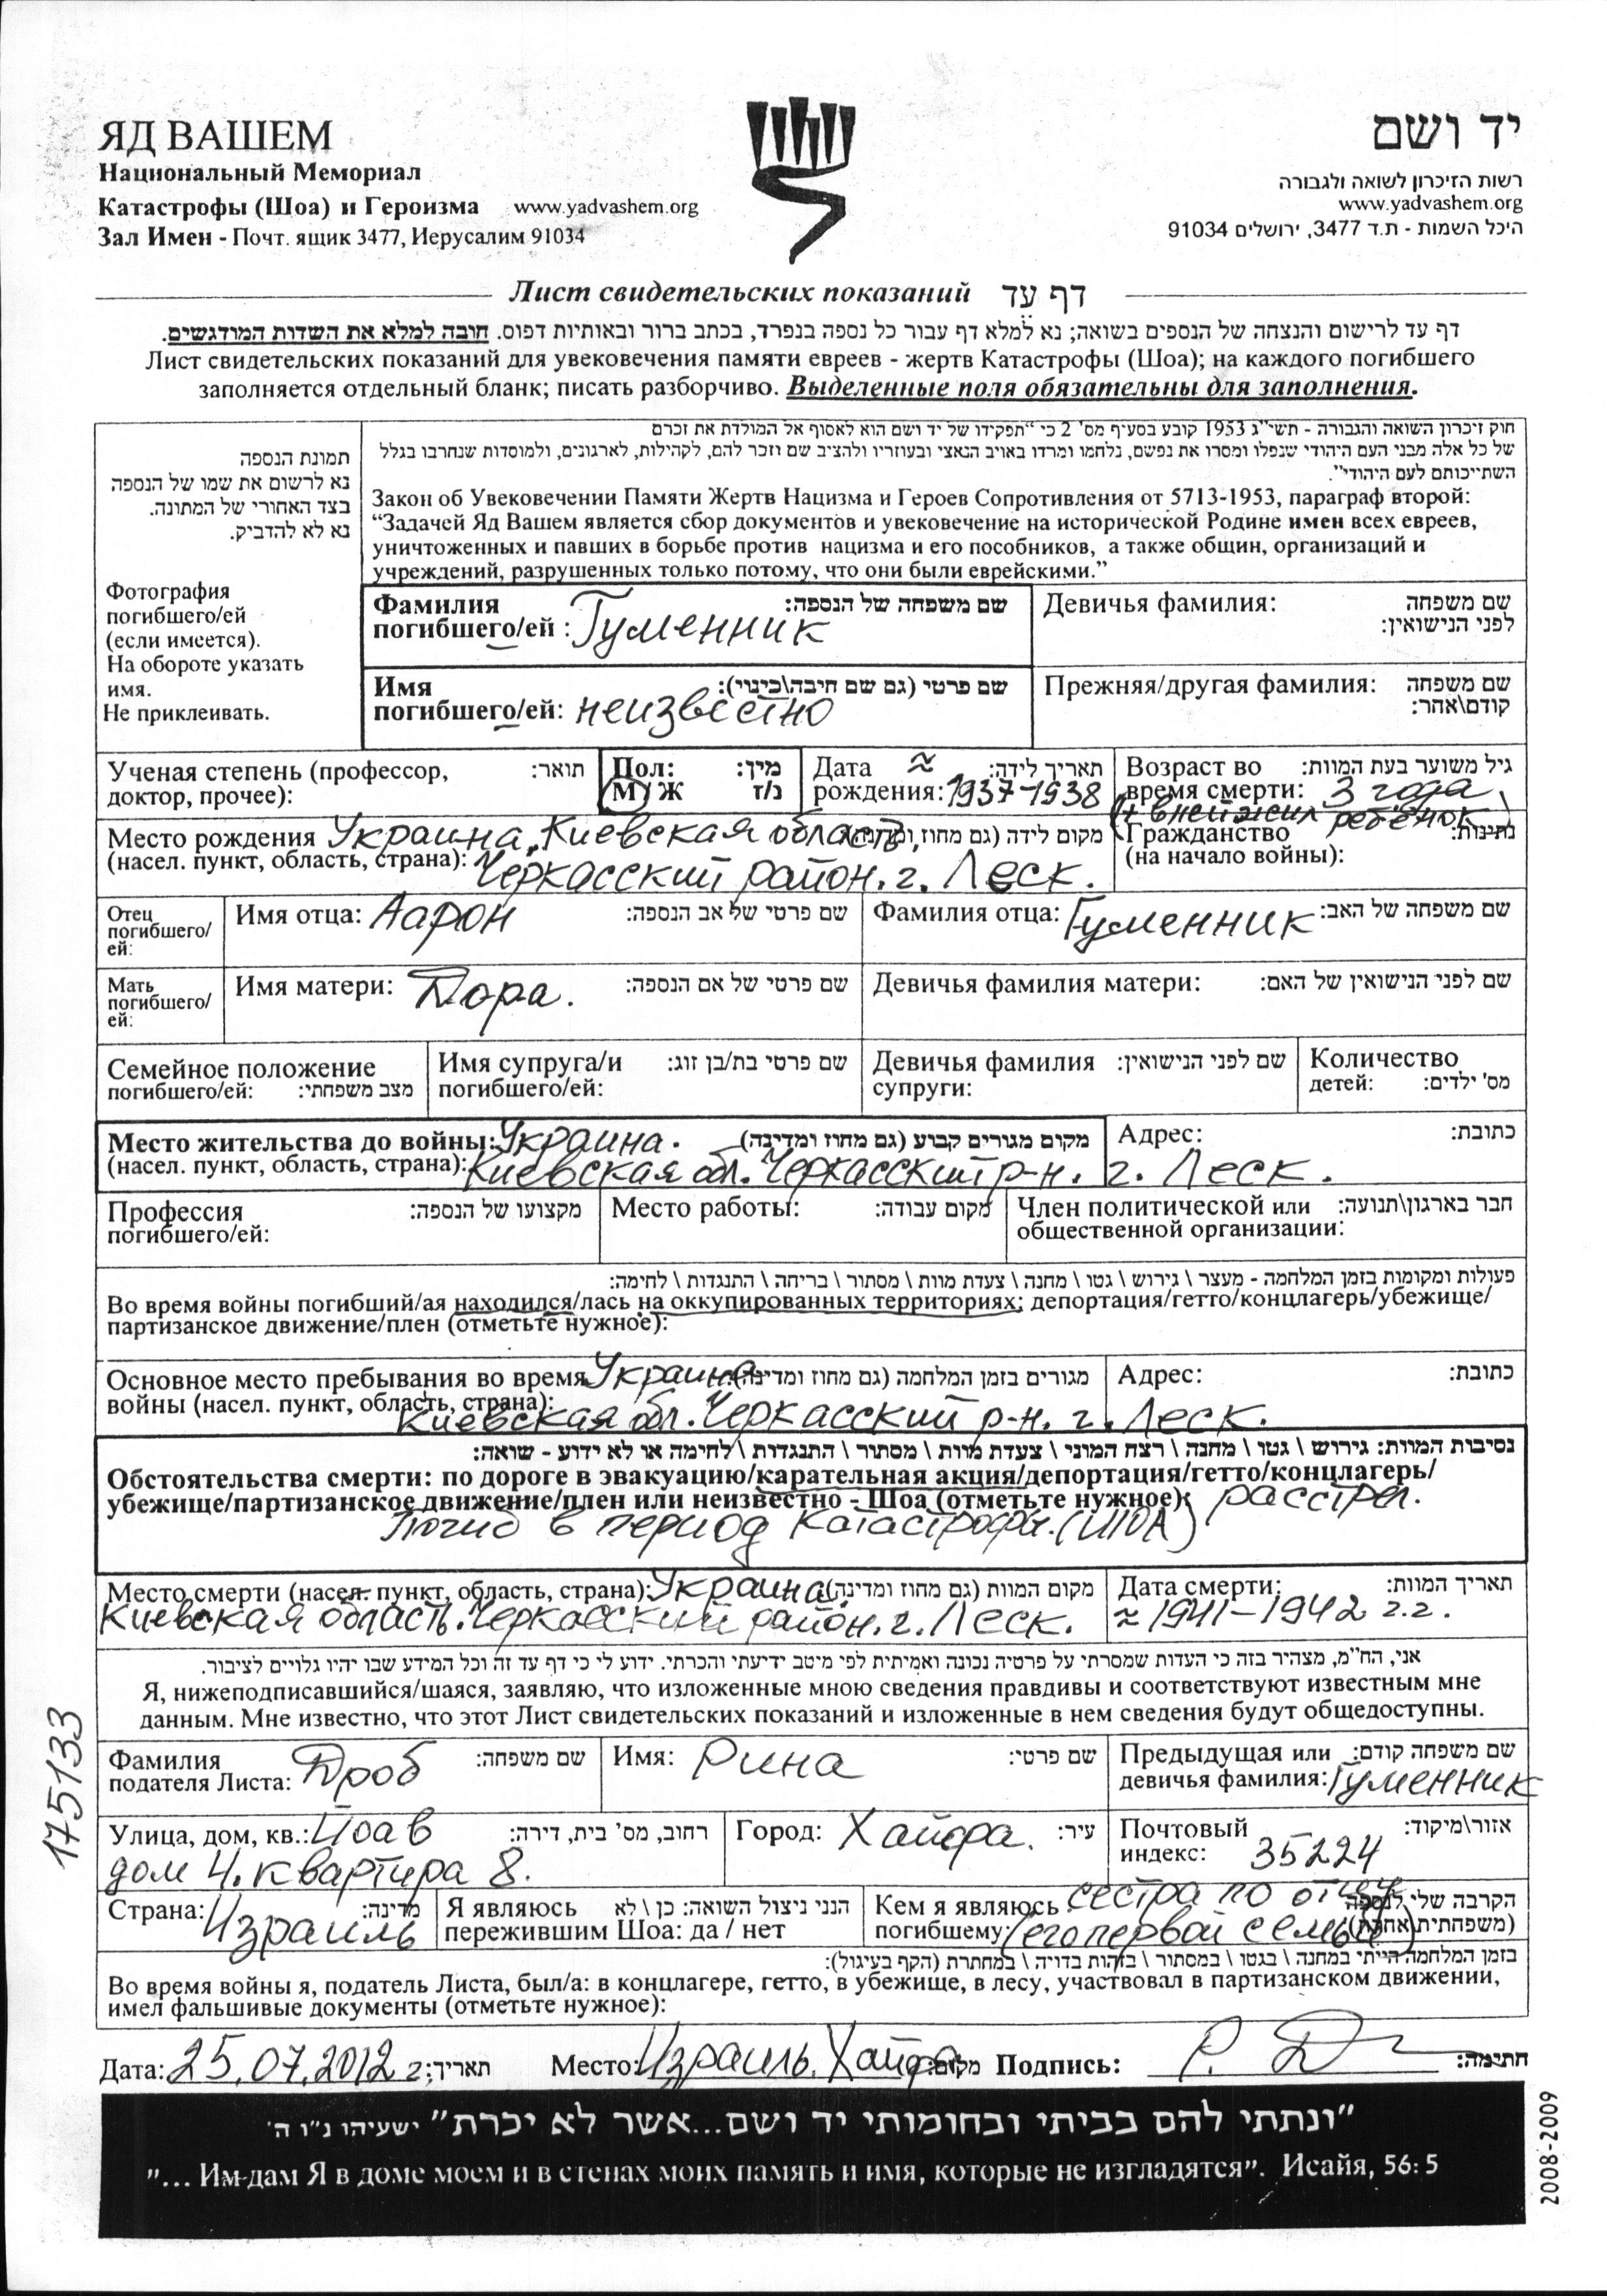 ЯД ВАШЕМ
Национальный Мемориал
Катастрофы (Шоа) и Героизма www.yadvashem.org
Зал Имен - Почт. ящик 3477, Иерусалим 91034
יד ושם
רשות הזיכרון לשואה ולגבורה
www.yadvashem.org
היכל השמות - ת.ד 3477, ירושלים 91034
Лист свидетельских показаний דף עד
דף עד לרישום והנצחה של הנספים בשואה; נא למלא דף עבור כל נספה בנפרד, בכתב ברור ובאותיות דפוס. חובה למלא את השדות המודגשים.
Лист свидетельских показаний для увековечения памяти евреев - жертв Катастрофы (Шоа); на каждого погибшего
заполняется отдельный бланк; писать разборчиво. Выделенные поля обязательны для заполнения.
תמונת הנספה
נא לרשום את שמו של הנספה
בצד האחורי של המתונה.
נא לא להדביק.
Фотография
погибшего/ей
(если имеется).
На обороте указать
имя.
Не приклеивать.
חוק זיכרון השואה והגבורה - תשי"ג 1953 קובע בסעיף מס' 2 כי "תפקידו של יד ושם הוא לאסוף אל המולדת את זכרם
של כל אלה מבני העם היהודי שנפלו ומסרו את נפשם, נלחמו ומרדו באויב הנאצי ובעוזריו ולהציב שם וזכר להם, לקהילות, לארגונים, ולמוסדות שנחרבו בגלל
השתייכותם לעם היהודי".
Закон об Увековечении Памяти Жертв Нацизма и Героев Сопротивления от 5713-1953, параграф второй:
“Задачей Яд Вашем является сбор документов и увековечение на исторической Родине имен всех евреев,
уничтоженных и павших в борьбе против нацизма и его пособников, а также общин, организаций и
учреждений, разрушенных только потому, что они были еврейскими.”
Фамилия שם משפחה של הנספה:
погибшего/ей : Гуменник
Девичья фамилия: שם משפחה
לפני הנישואין:
Имя שם פרטי (גם שם חיבה\כינוי):
погибшего/ей: неизвестно
Прежняя/другая фамилия: שם משפחה
קודם\אחר:
Ученая степень (профессор, תואר:
доктор, прочее):
Пол: מין:
М/Ж נ/ז
Дата ≈ תאריך לידה:
рождения: 1937-1938
Возраст во גיל משוער בעת המוות:
время смерти: 3 года
ребёнок)
Место рождения Украина, Киевская область, מקום לידה (גם מחוז ומדינה)
(насел. пункт, область, страна): Черкасский район. г. Леск.
Гражданство נתינות:
(на начало войны):
Отец
погибшего/
ей:
Имя отца: Аарон שם פרטי של אב הנספה:
Фамилия отца: Гуменник שם משפחה של האב:
Мать
погибшего/
ей:
Имя матери: Дора. שם פרטי של אם הנספה:
Девичья фамилия матери: שם לפני הנישואין של האם:
Семейное положение
погибшего/ей: מצב משפחתי:
Имя супруга/и שם פרטי בת/בן זוג:
погибшего/ей:
Девичья фамилия שם לפני הנישואין:
супруги:
Количество
детей: מס' ילדים:
Место жительства до войны: Украина. מקום מגורים קבוע (גם מחוז ומדינה)
(насел. пункт, область, страна): Киевская обл. Черкасский р-н. г. Леск.
Адрес: כתובת:
Профессия מקצועו של הנספה:
погибшего/ей:
Место работы: מקום עבודה:
Член политической или חבר בארגון\תנועה:
общественной организации:
פעולות ומקומות בזמן המלחמה - מעצר \ גירוש \ גטו \ מחנה \ צעדת מוות \ מסתור \ בריחה \ התנגדות \ לחימה:
Во время войны погибший/ая находился/лась на оккупированных территориях; депортация/гетто/концлагерь/убежище/
партизанское движение/плен (отметьте нужное):
Основное место пребывания во время Украина מגורים בזמן המלחמה (גם מחוז ומדינה):
войны (насел. пункт, область, страна): Киевская обл. Черкасский р-н. г. Леск.
Адрес: כתובת:
נסיבות המוות: גירוש \ גטו \ מחנה \ רצח המוני \ צעדת מוות \ מסתור \ התנגדות \ לחימה או לא ידוע - שואה:
Обстоятельства смерти: по дороге в эвакуацию/карательная акция/депортация/гетто/концлагерь/
убежище/партизанское движение/плен или неизвестно - Шоа (отметьте нужное): расстрел.
Погиб в период Катастрофы. (ШОА)
Место смерти (насел. пункт, область, страна): Украина, מקום המוות (גם מחוז ומדינה)
Киевская область. Черкасский район. г. Леск.
Дата смерти: תאריך המוות:
≈ 1941-1942 г.г.
אני, הח"מ, מצהיר בזה כי העדות שמסרתי על פרטיה נכונה ואמיתית לפי מיטב ידיעתי והכרתי. ידוע לי כי דף עד זה וכל המידע שבו יהיו גלויים לציבור.
Я, нижеподписавшийся/шаяся, заявляю, что изложенные мною сведения правдивы и соответствуют известным мне
данным. Мне известно, что этот Лист свидетельских показаний и изложенные в нем сведения будут общедоступны.
Фамилия שם משפחה:
подателя Листа: Дроб
Имя: Рина שם פרטי:
Предыдущая или שם משפחה קודם:
девичья фамилия: Гуменник
Улица, дом, кв.: Йоав רחוב, מס' בית, דירה:
дом 4. квартира 8.
Город: Хайфа. עיר:
Почтовый אזור\מיקוד:
индекс: 35224
Страна: Израиль מדינה:
Я являюсь הנני ניצול השואה: כן \ לא
пережившим Шоа: да / нет
Кем я являюсь сестра по отцу הקרבה שלי לנספה
погибшему: (его первой семьи) (משפחתית\אחרת):
בזמן המלחמה הייתי במחנה \ בגטו \ במסתור \ בזהות בדויה \ במחתרת (הקף בעיגול):
Во время войны я, податель Листа, был/а: в концлагере, гетто, в убежище, в лесу, участвовал в партизанском движении,
имел фальшивые документы (отметьте нужное):
Дата: 25.07.2012 г. תאריך: Место: Израиль. Хайфа מקום: Подпись: Р. Д חתימה:
"ונתתי להם בביתי ובחומותי יד ושם...אשר לא יכרת" ישעיהו נ"ו ה'
"... Им дам Я в доме моем и в стенах моих память и имя, которые не изгладятся". Исайя, 56:5
175133
2008-2009